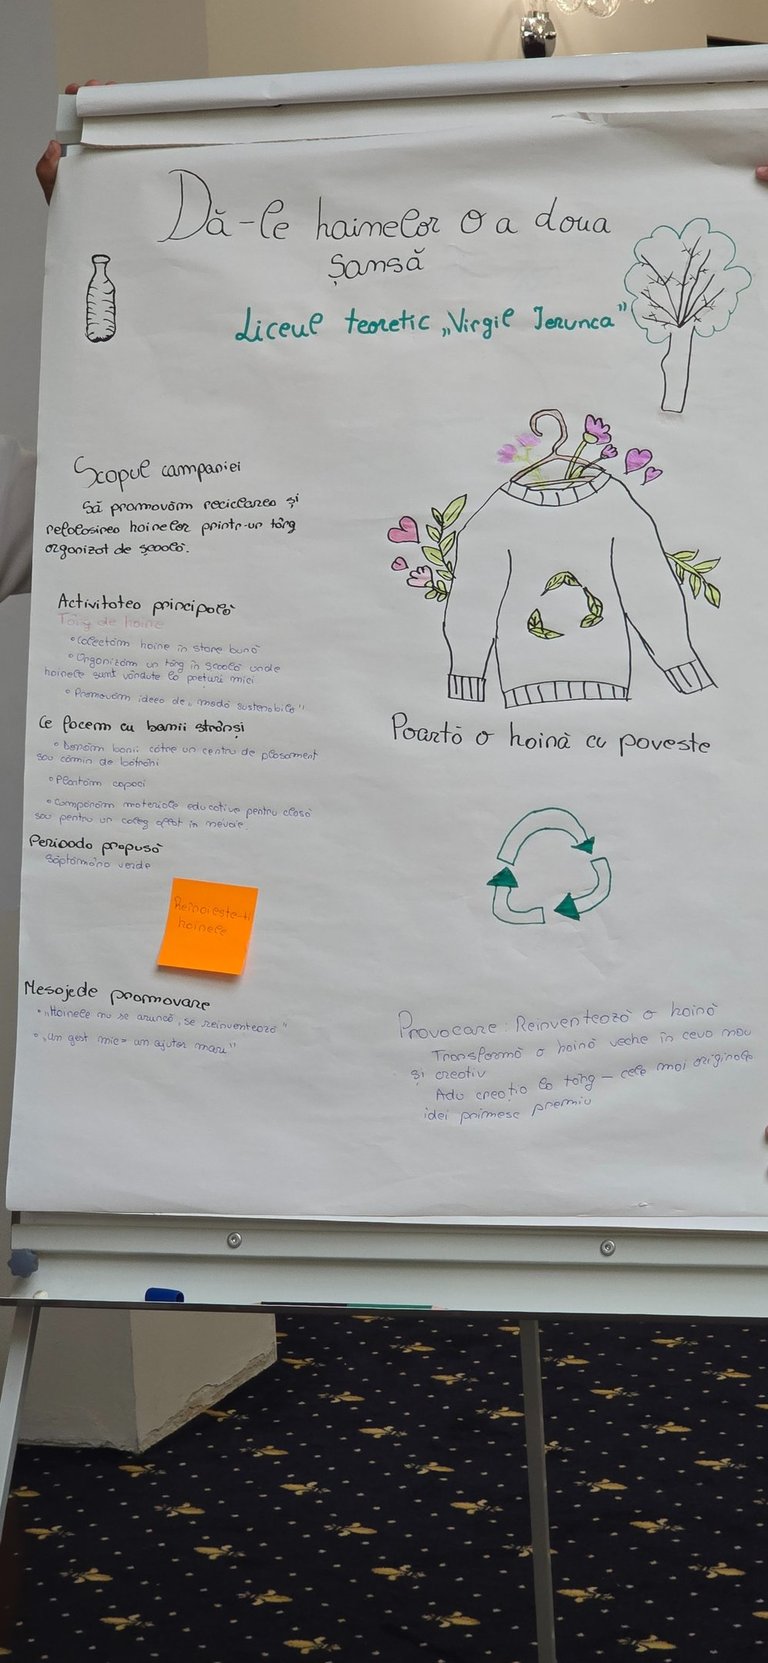 Dă-le hainelor o a doua
șansă
Liceul teoretic „Virgil Ierunca"
Scopul campaniei
Să promovăm reciclarea și
refolosirea hainelor printr-un târg
organizat de școală.
Activitatea principală
Târg de haine
• Colectăm haine în stare bună
• Organizăm un târg în școală unde
hainele sunt vândute la prețuri mici
• Promovăm ideea de „modă sustenabilă"
Ce facem cu banii strânși
• Donăm banii către un centru de plasament
sau cămin de bătrâni
• Plantăm copaci
• Cumpărăm materiale educative pentru clasă
sau pentru un coleg aflat în nevoie
Perioada propusă
Săptămâna verde
Reînoiește-ți
hainele
Mesaje de promovare
• „Hainele nu se aruncă, se reinventează"
• „Un gest mic = un ajutor mare"
Poartă o haină cu poveste
Provocare: Reinventează o haină
Transformă o haină veche în ceva nou
și creativ
Adu creația la târg – cele mai originale
idei primesc premiu